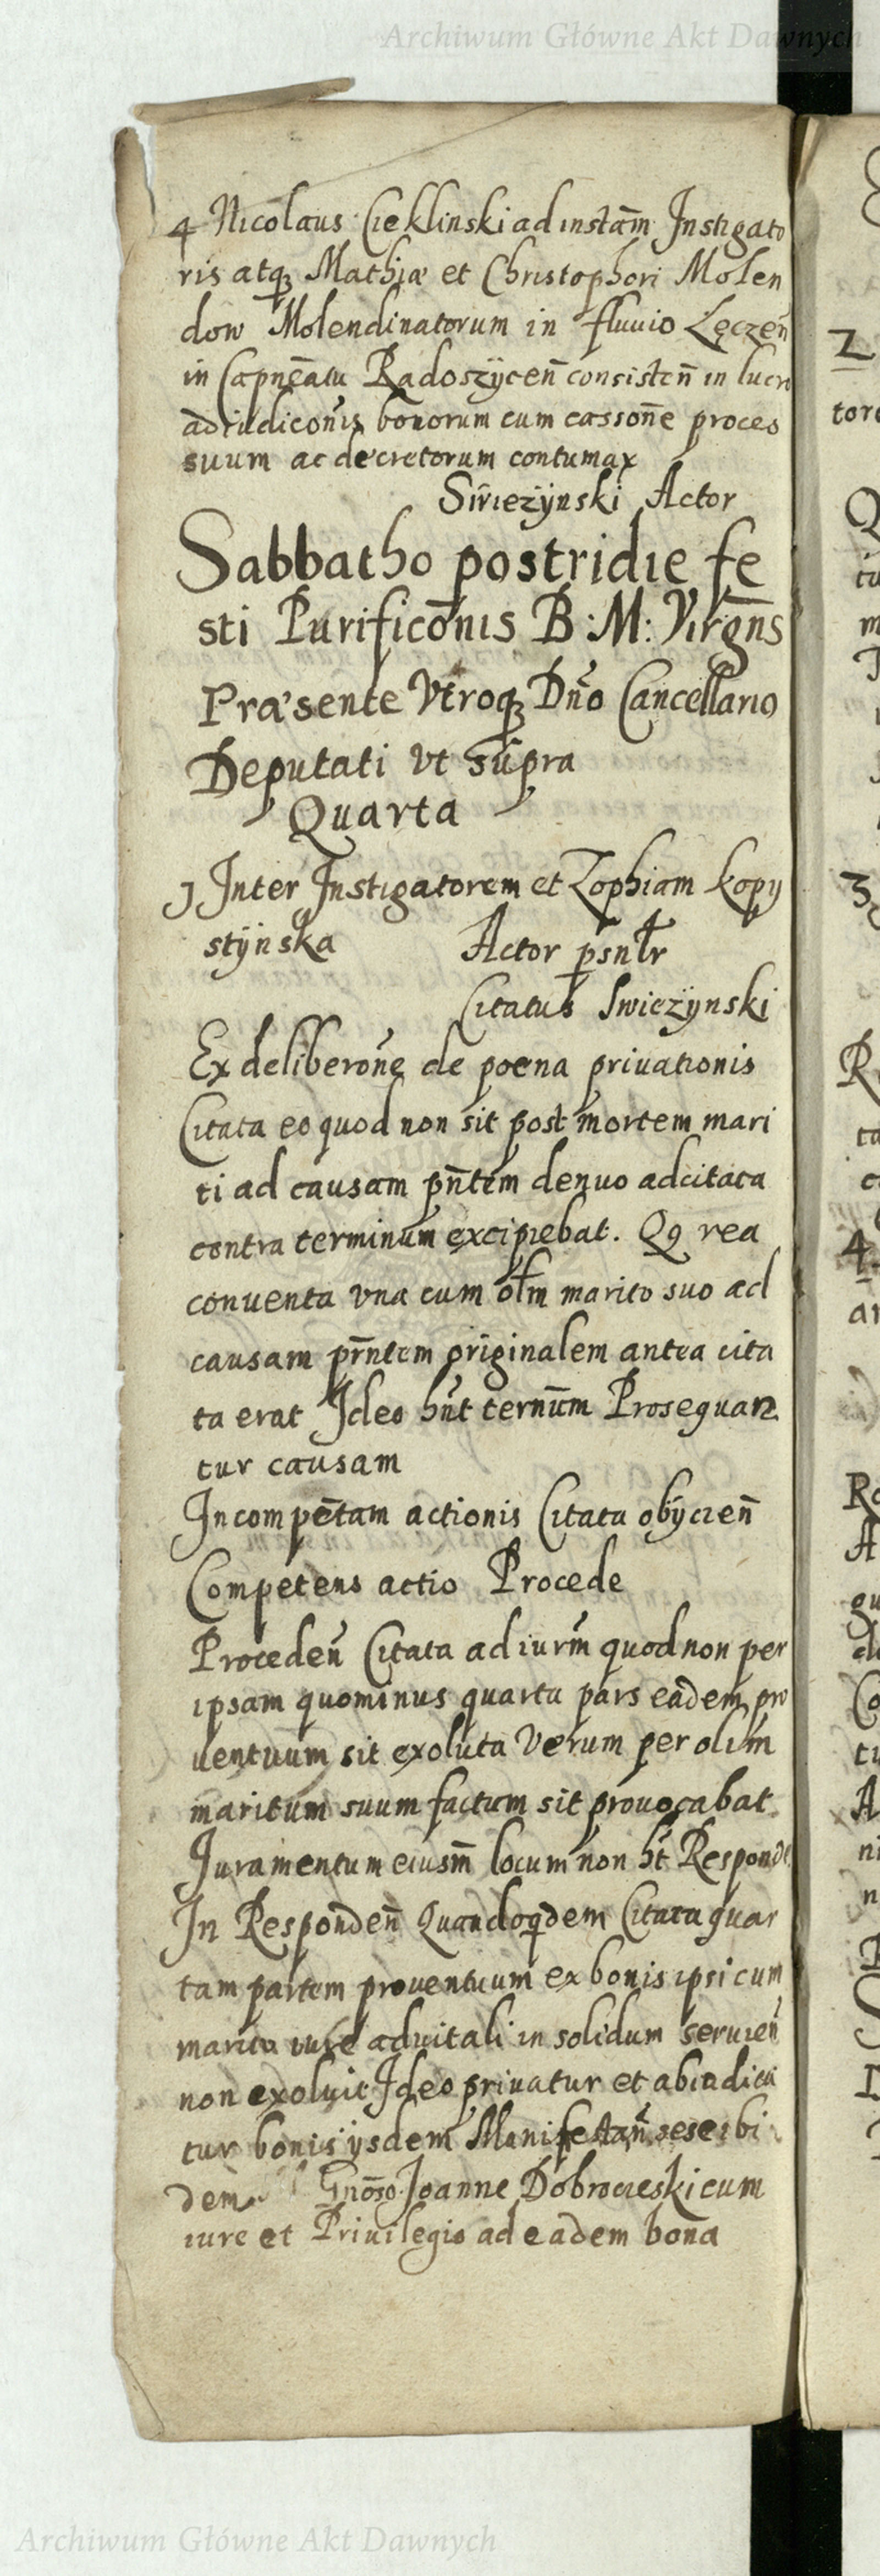 Archiwum Główne Akt Dawnych
4 Nicolaus Cieklinski ad instam̄ Instigato
ris atqꝫ Mathiæ et Christophori Molen
dow Molendinatorum in fluuio Lęczen̄
in Capnēatu Radoszÿcen̄ consisten̄ in lucro
adiudicon̄is bonorum cum casson̄e proces
suum ac decretorum contumax
Swiezÿnski Actor
Sabbatho postridie fe
sti Purificōnis B: M: Virgn̄s
Præsente Vtroqꝫ Dn̄o Cancellario
Deputati vt supra
Quarta
1 Inter Instigatorem et Zophiam Kopy
stÿnska Actor psnt̄r
Citatus Swiezÿnski
Ex deliberon̄e de poena priuationis
Citata eo quod non sit post mortem mari
ti ad causam pn̄tem denuo adcitata
contra terminum excipiebat. Qꝯ rea
conuenta vna cum olm̄ marito suo ad
causam prn̄tem originalem antea cita
ta erat Ideo hn̄t tern̄um Prosequan
tur causam
Incompet̄am actionis Citata obÿcien̄
Competens actio Procede
Proceden̄ Citata ad iurm̄ quod non per
ipsam quominus quarta pars eadem pro
uentuum sit exoluta Verum per olim
maritum suum factum sit prouocabat
Iuramentum eiusm̄ locum non ht̄ Responde
In Responden̄ Quandoqdem Citata quar
tam partem prouentuum ex bonis ipsi cum
marito iure aduitali in solidum seruien̄
non exoluit Ideo priuatur et abiudica
tur bonis ÿsdem Manifestan̄ sese ibi
dem Gnōso Joanne Dobrocieski cum
iure et Priuilegio ad eadem bona
Archiwum Główne Akt Dawnych